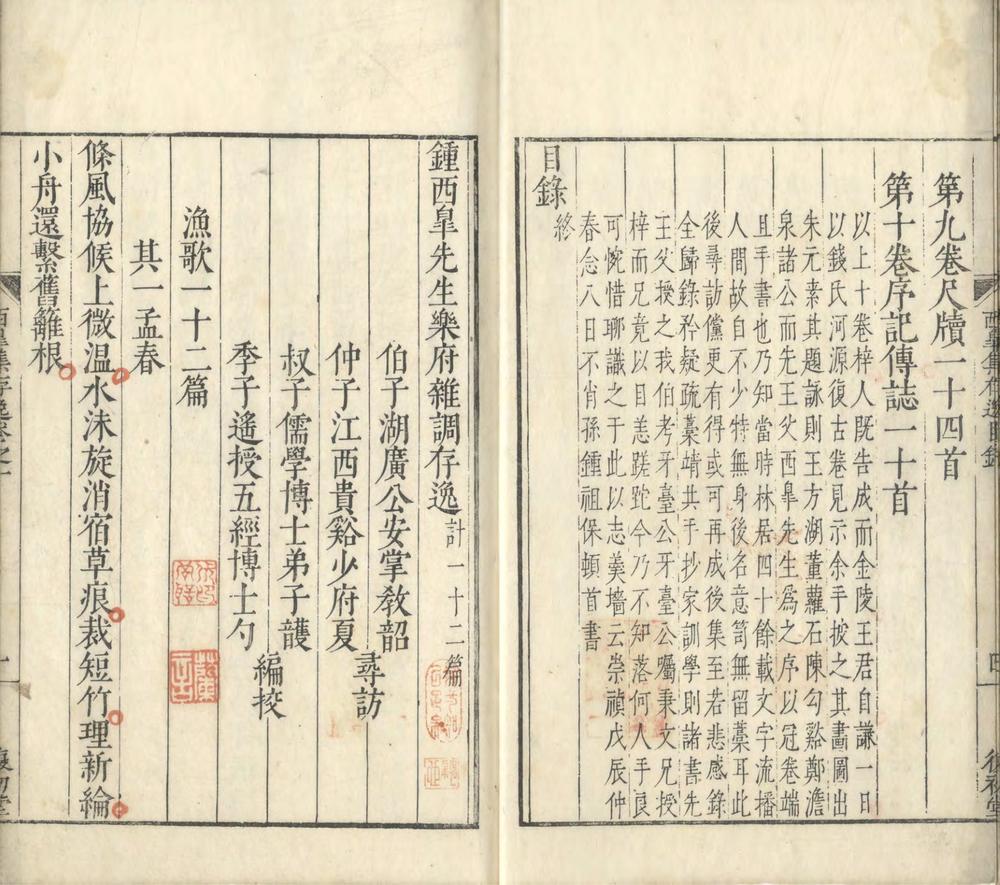 第九卷尺牘一十四首
第十卷序記傳誌一十首
以上十卷梓人既告成而金陵王君自謙一日
以錢氏河源復古卷見示余手披之其畫圖出
朱元素其題詠則王方湖董蘿石陳勾谿鄭澹
泉諸公而先王父西臯先生爲之序以冠卷端
且手書也乃知當時林居四十餘載文字流播
人間故自不少特無身後名意笥無留藁耳此
後尋訪儻更有得或可再成後集至若悲感錄
全歸錄矜疑疏藁靖共手抄家訓學則諸書先
王父授之我伯考牙臺公牙臺公囑秉文兄授
梓而兄竟以目恙蹉跎今乃不知落何人手良
可惋惜瑯識之于此以志羹墻云崇禎戊辰仲
春念八日不肖孫鍾祖保頓首書
目錄終
鍾西臯先生樂府雜調存逸計一十二篇
伯子湖廣公安掌教韶
仲子江西貴谿少府夏 尋訪
叔子儒學博士弟子頀
季子遙授五經博士勺 編挍
漁歌一十二篇
其一孟春
條風協候上微溫水沫旋消宿草痕裁短竹理新綸
小舟還繫舊籬根